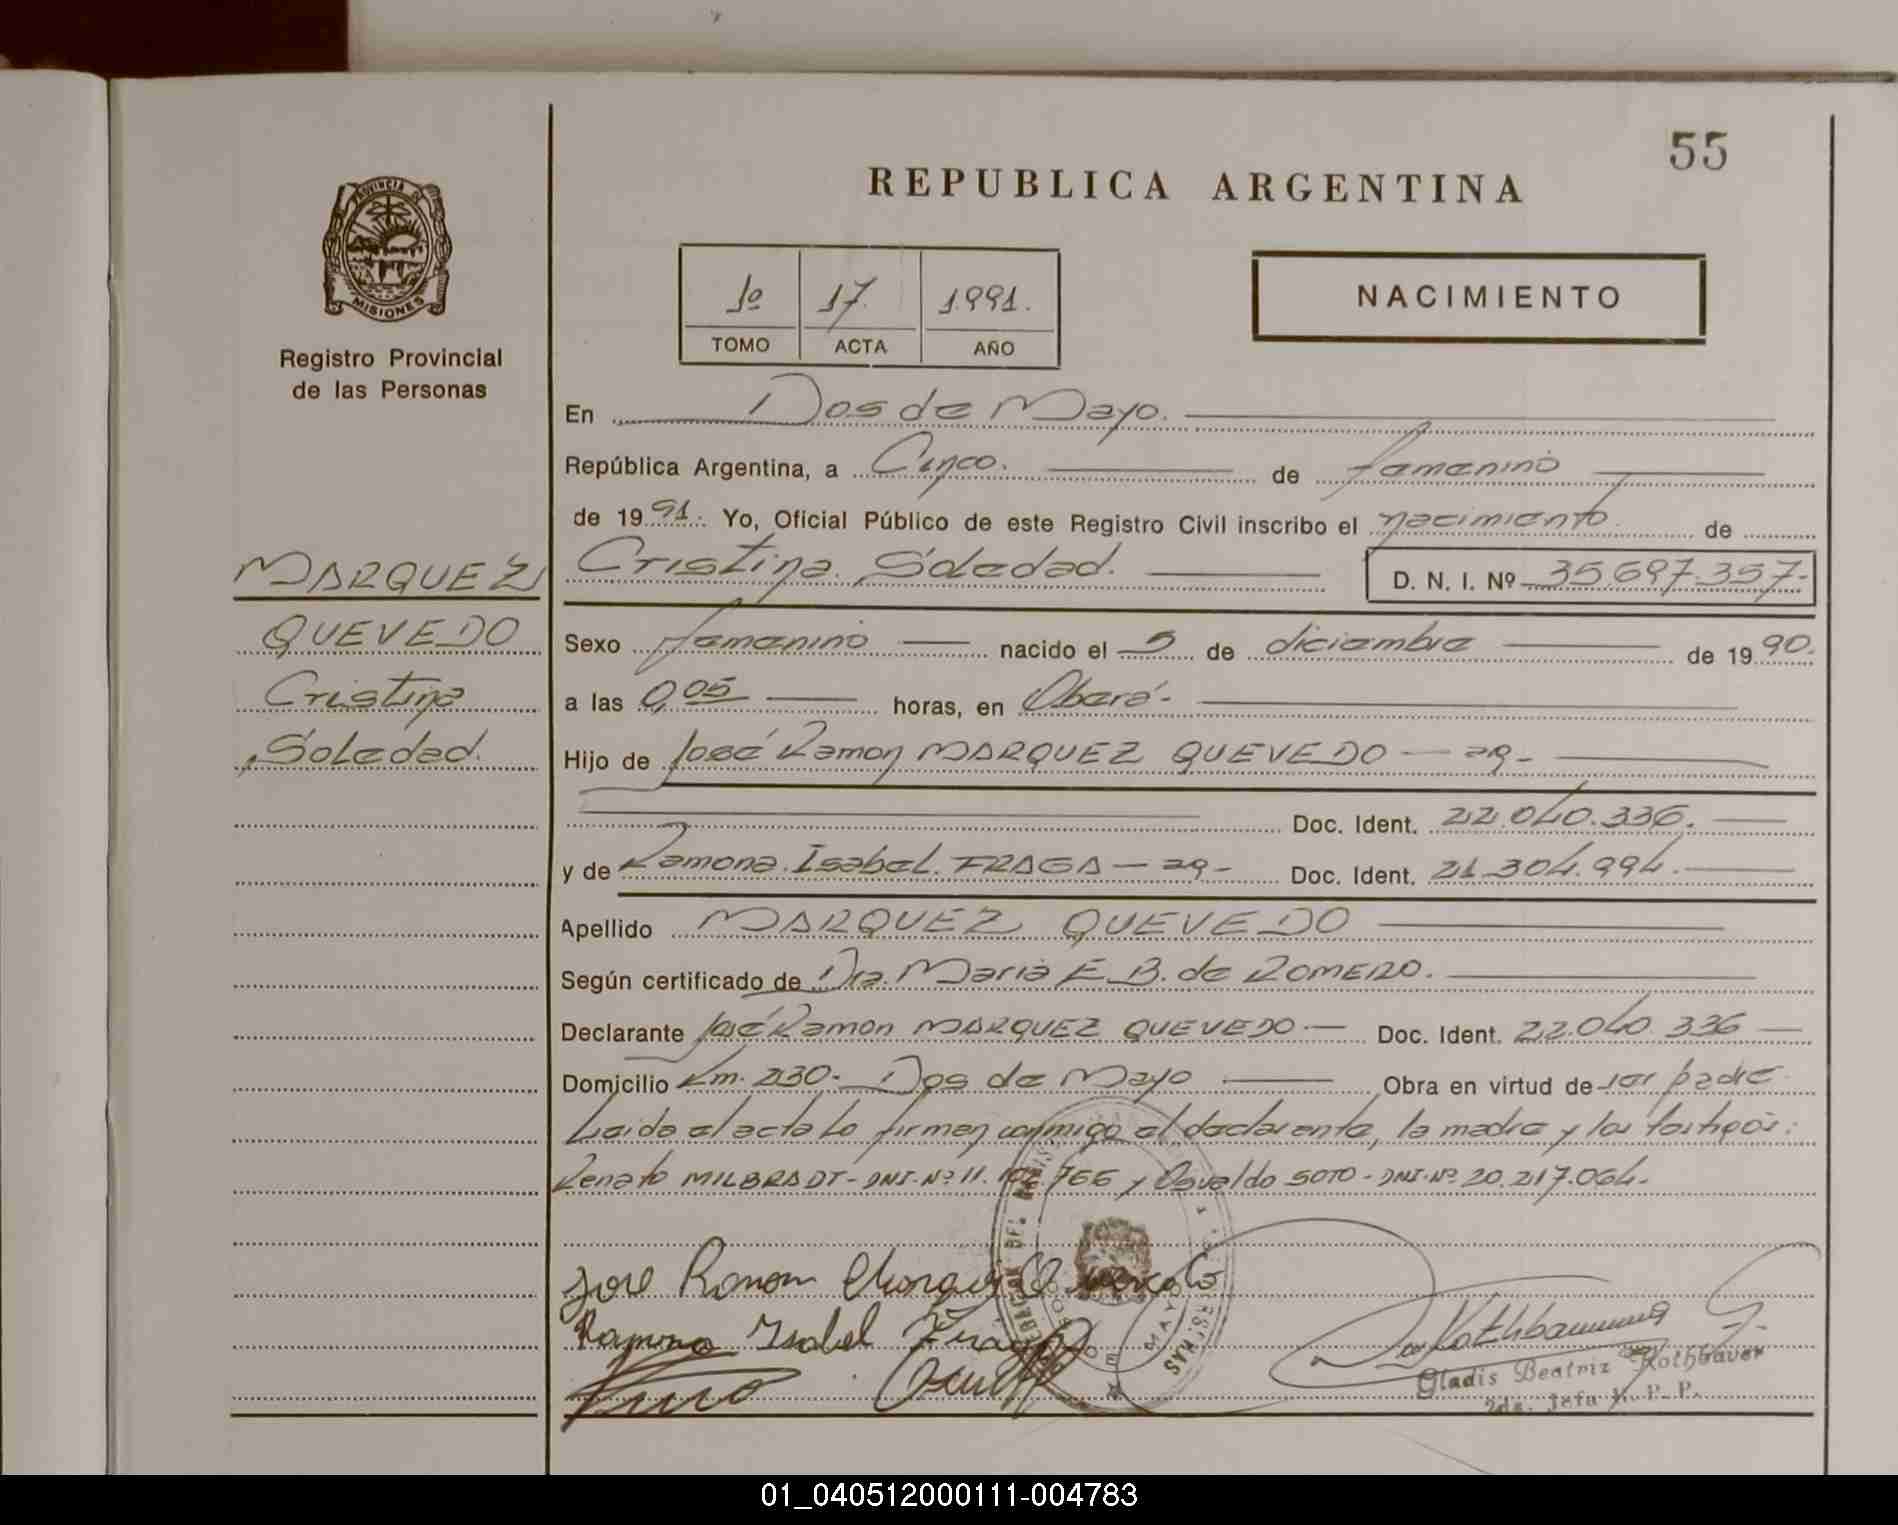 55
REPUBLICA ARGENTINA
PROVINCIA DE
MISIONES
Registro Provincial
de las Personas
1º 17. 1.991.
TOMO ACTA AÑO
NACIMIENTO
En Dos de Mayo.
República Argentina, a Cinco. de femenino
de 1991. Yo, Oficial Público de este Registro Civil inscribo el nacimiento de
MARQUEZ
Cristina Soledad. D. N. I. Nº 35.697.357-
QUEVEDO
Sexo femenino nacido el 5 de diciembre de 1990.
Cristina
a las 0,05 horas, en Oberá-
Soledad.
Hijo de José Ramon MARQUEZ QUEVEDO - ag-
Doc. Ident. 22.040.336.
y de Ramona Isabel FRAGA - ag- Doc. Ident. 21.304.994.
Apellido MARQUEZ QUEVEDO
Según certificado de Dra. Maria E. B. de ROMERO.
Declarante José Ramon MARQUEZ QUEVEDO - Doc. Ident. 22.040.336
Domicilio Km. 230- Dos de Mayo Obra en virtud de ser padre
Leida el acta lo firman conmigo el declarante, la madre y los testigos:
Renato MILBRADT - DNI-Nº 11. 766 y Osvaldo SOTO - DNI-Nº 20.217.064-
Jose Ramon Marquez Quevedo
Ramona Isabel Fraga
Gladis Beatriz Rothbauer
2da. Jefa R. P. P.
01_040512000111-004783